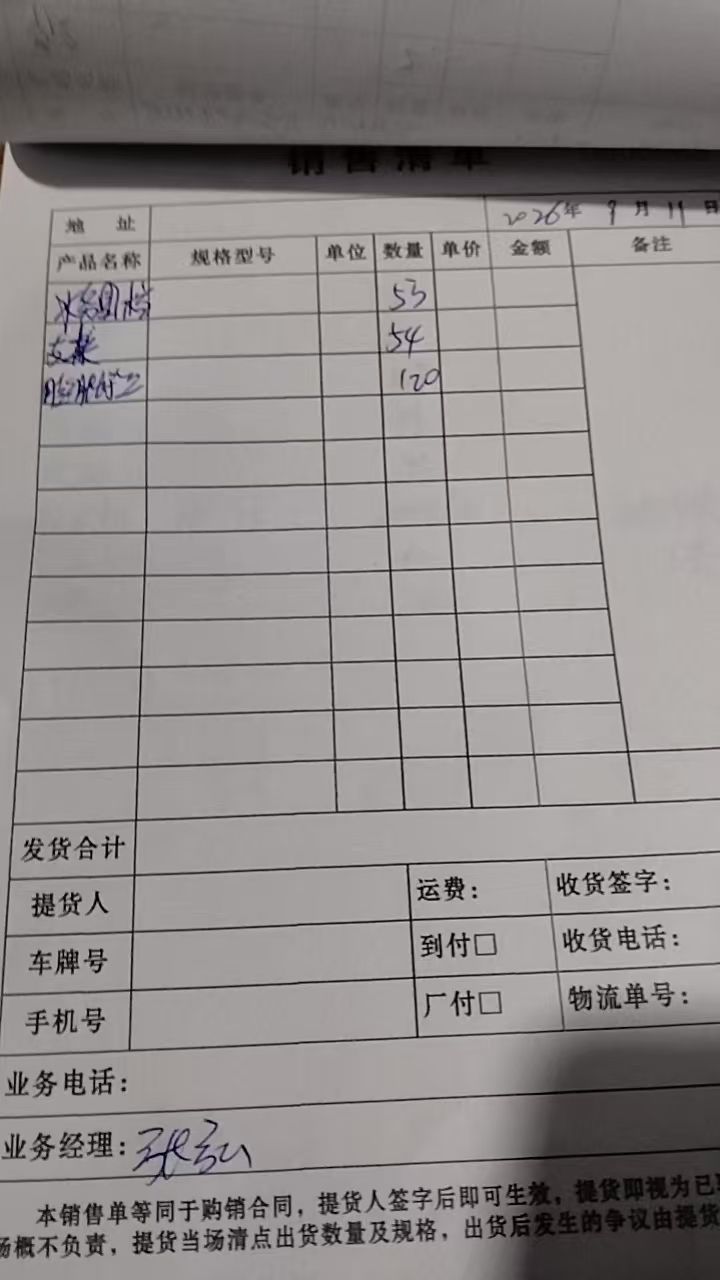 销售清单
地 址 2026年 9月 11日
产品名称 规格型号 单位 数量 单价 金额 备注
53
支架 54
120
发货合计
提货人 运费： 收货签字：
车牌号 到付□ 收货电话：
手机号 厂付□ 物流单号：
业务电话：
业务经理：张
本销售单等同于购销合同，提货人签字后即可生效，提货即视为已
场概不负责，提货当场清点出货数量及规格，出货后发生的争议由提货